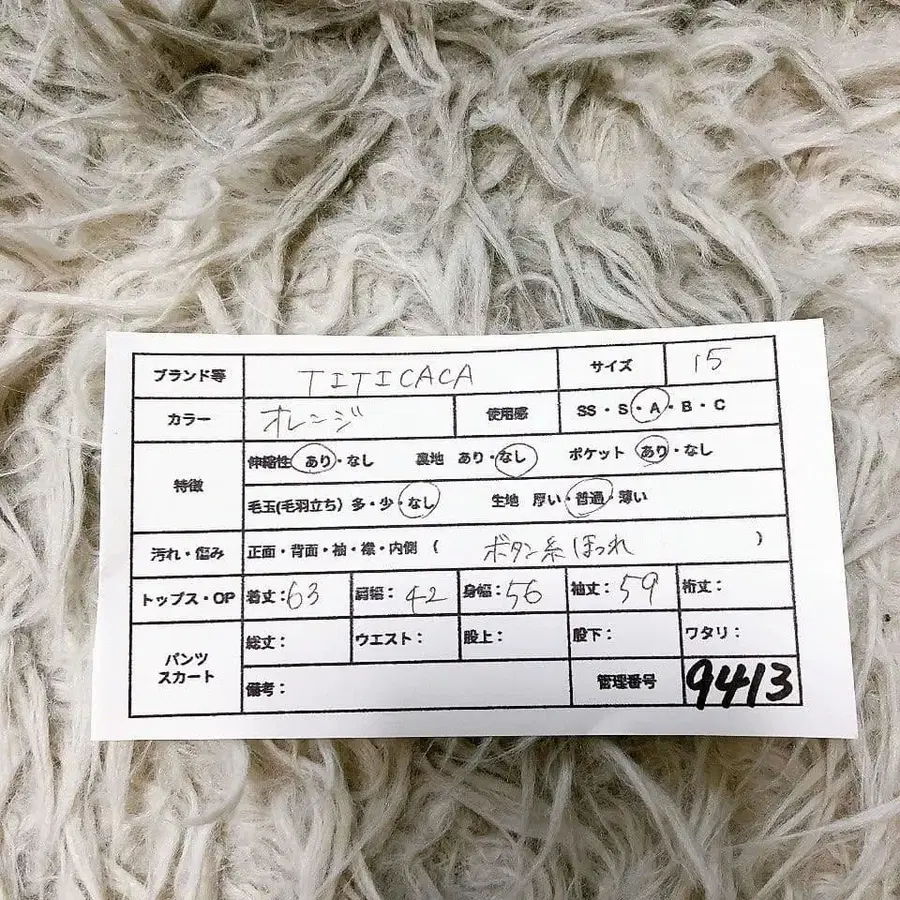 ブランド等 TITICACA サイズ 15
カラー オレンジ 使用感 SS・S・A・B・C
特徴 伸縮性 あり・なし 裏地 あり・なし ポケット あり・なし
毛玉(毛羽立ち) 多・少・なし 生地 厚い・普通・薄い
汚れ・傷み 正面・背面・袖・襟・内側 ( ボタン糸ほつれ )
トップス・OP 着丈:63 肩幅:42 身幅:56 袖丈:59 裄丈:
パンツ
スカート
総丈: ウエスト: 股上: 股下: ワタリ:
備考: 管理番号 9413